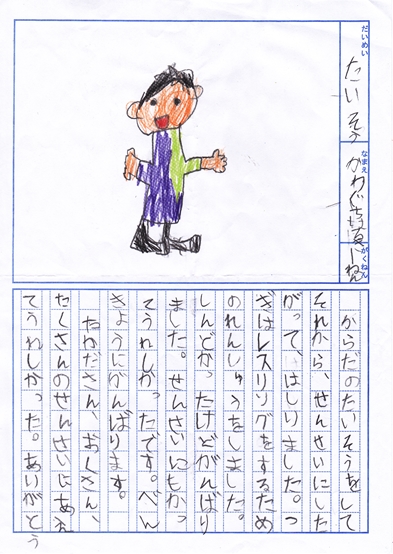 だいめい
たいそう
なまえ
かわぐち
がくねん
一ねん
からだのたいそうをして
それから、せんせいにした
がって、はしりました。つ
ぎはレスリングをするため
のれんしゅうをしました。
しんどかったけどがんばり
ました。せんせいにもかっ
てうれしかったです。べん
きょうにがんばります。
たかださん、おくさん、
たくさんのせんせいにあえ
てうれしかった。ありがとう